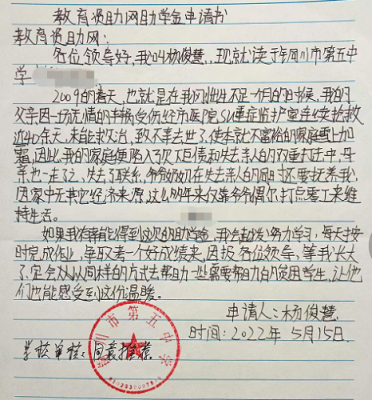 教育资助网助学金申请书
教育资助网:
各位领导好,我叫杨俊慧,现就读于邓州市第五中
学
2009的春天,也就是在我刚出生不足一月的时候,我的
父亲因一场无情的车祸受伤经市医院SU重症监护室连续抢救
近40余天,未能救治,致不幸去世了,使本就不富裕的家庭雪上加
霜,因此,我的家庭便陷入了欠下巨债和失去亲人的双重打击中,母
亲也一走了之,失去了联系,爷爷奶奶在失去亲人的同时还要抚养我,
因家中无其它经济来源,这么多年来仅靠爷爷偶尔打点零工来维
持生活。
如果我有幸能得到这次的助学金,我会更加努力学习,每天按
时完成作业,争取考个好成绩来,回报各位领导,等我长大
了,定会以同样的方式去帮助一些需要帮助的贫困学生,让他
们也能感受到这份温暖。
申请人:杨俊慧
时间:2022年5月15日
学校审核:同意推荐
市第五中学